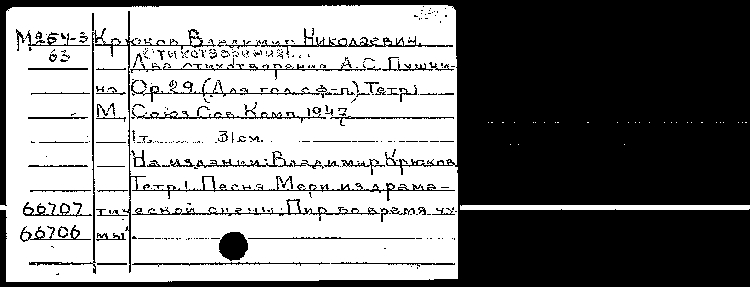 М254-3 Крюков, Владимир Николаевич.
63 [Стихотворения]...
Два стихотворения А.С. Пушки-
на. Ор. 29. (Для гол. с ф-п.) Тетр. 1
М., Союз Сов. Комп., 1947.
1 т. 31 см.
На издании: Владимир Крюков,
Тетр. 1. Песня Мери из драма-
66707 тической сцены: Пир во время чу-
66706 мы.